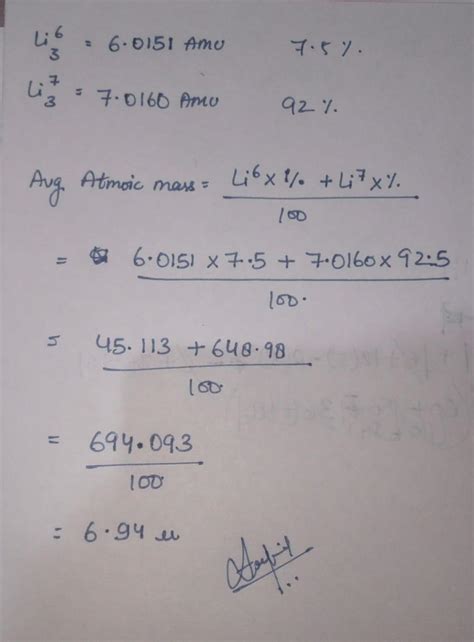 Li⁶₃ = 6.0151 AMU 7.5 %.
Li⁷₃ = 7.0160 AMU 92 %.
Avg. Atmoic mass = Li⁶ x % + Li⁷ x %
100
= 6.0151 x 7.5 + 7.0160 x 92.5
100.
= 45.113 + 648.98
100.
= 694.093
100
= 6.94 u